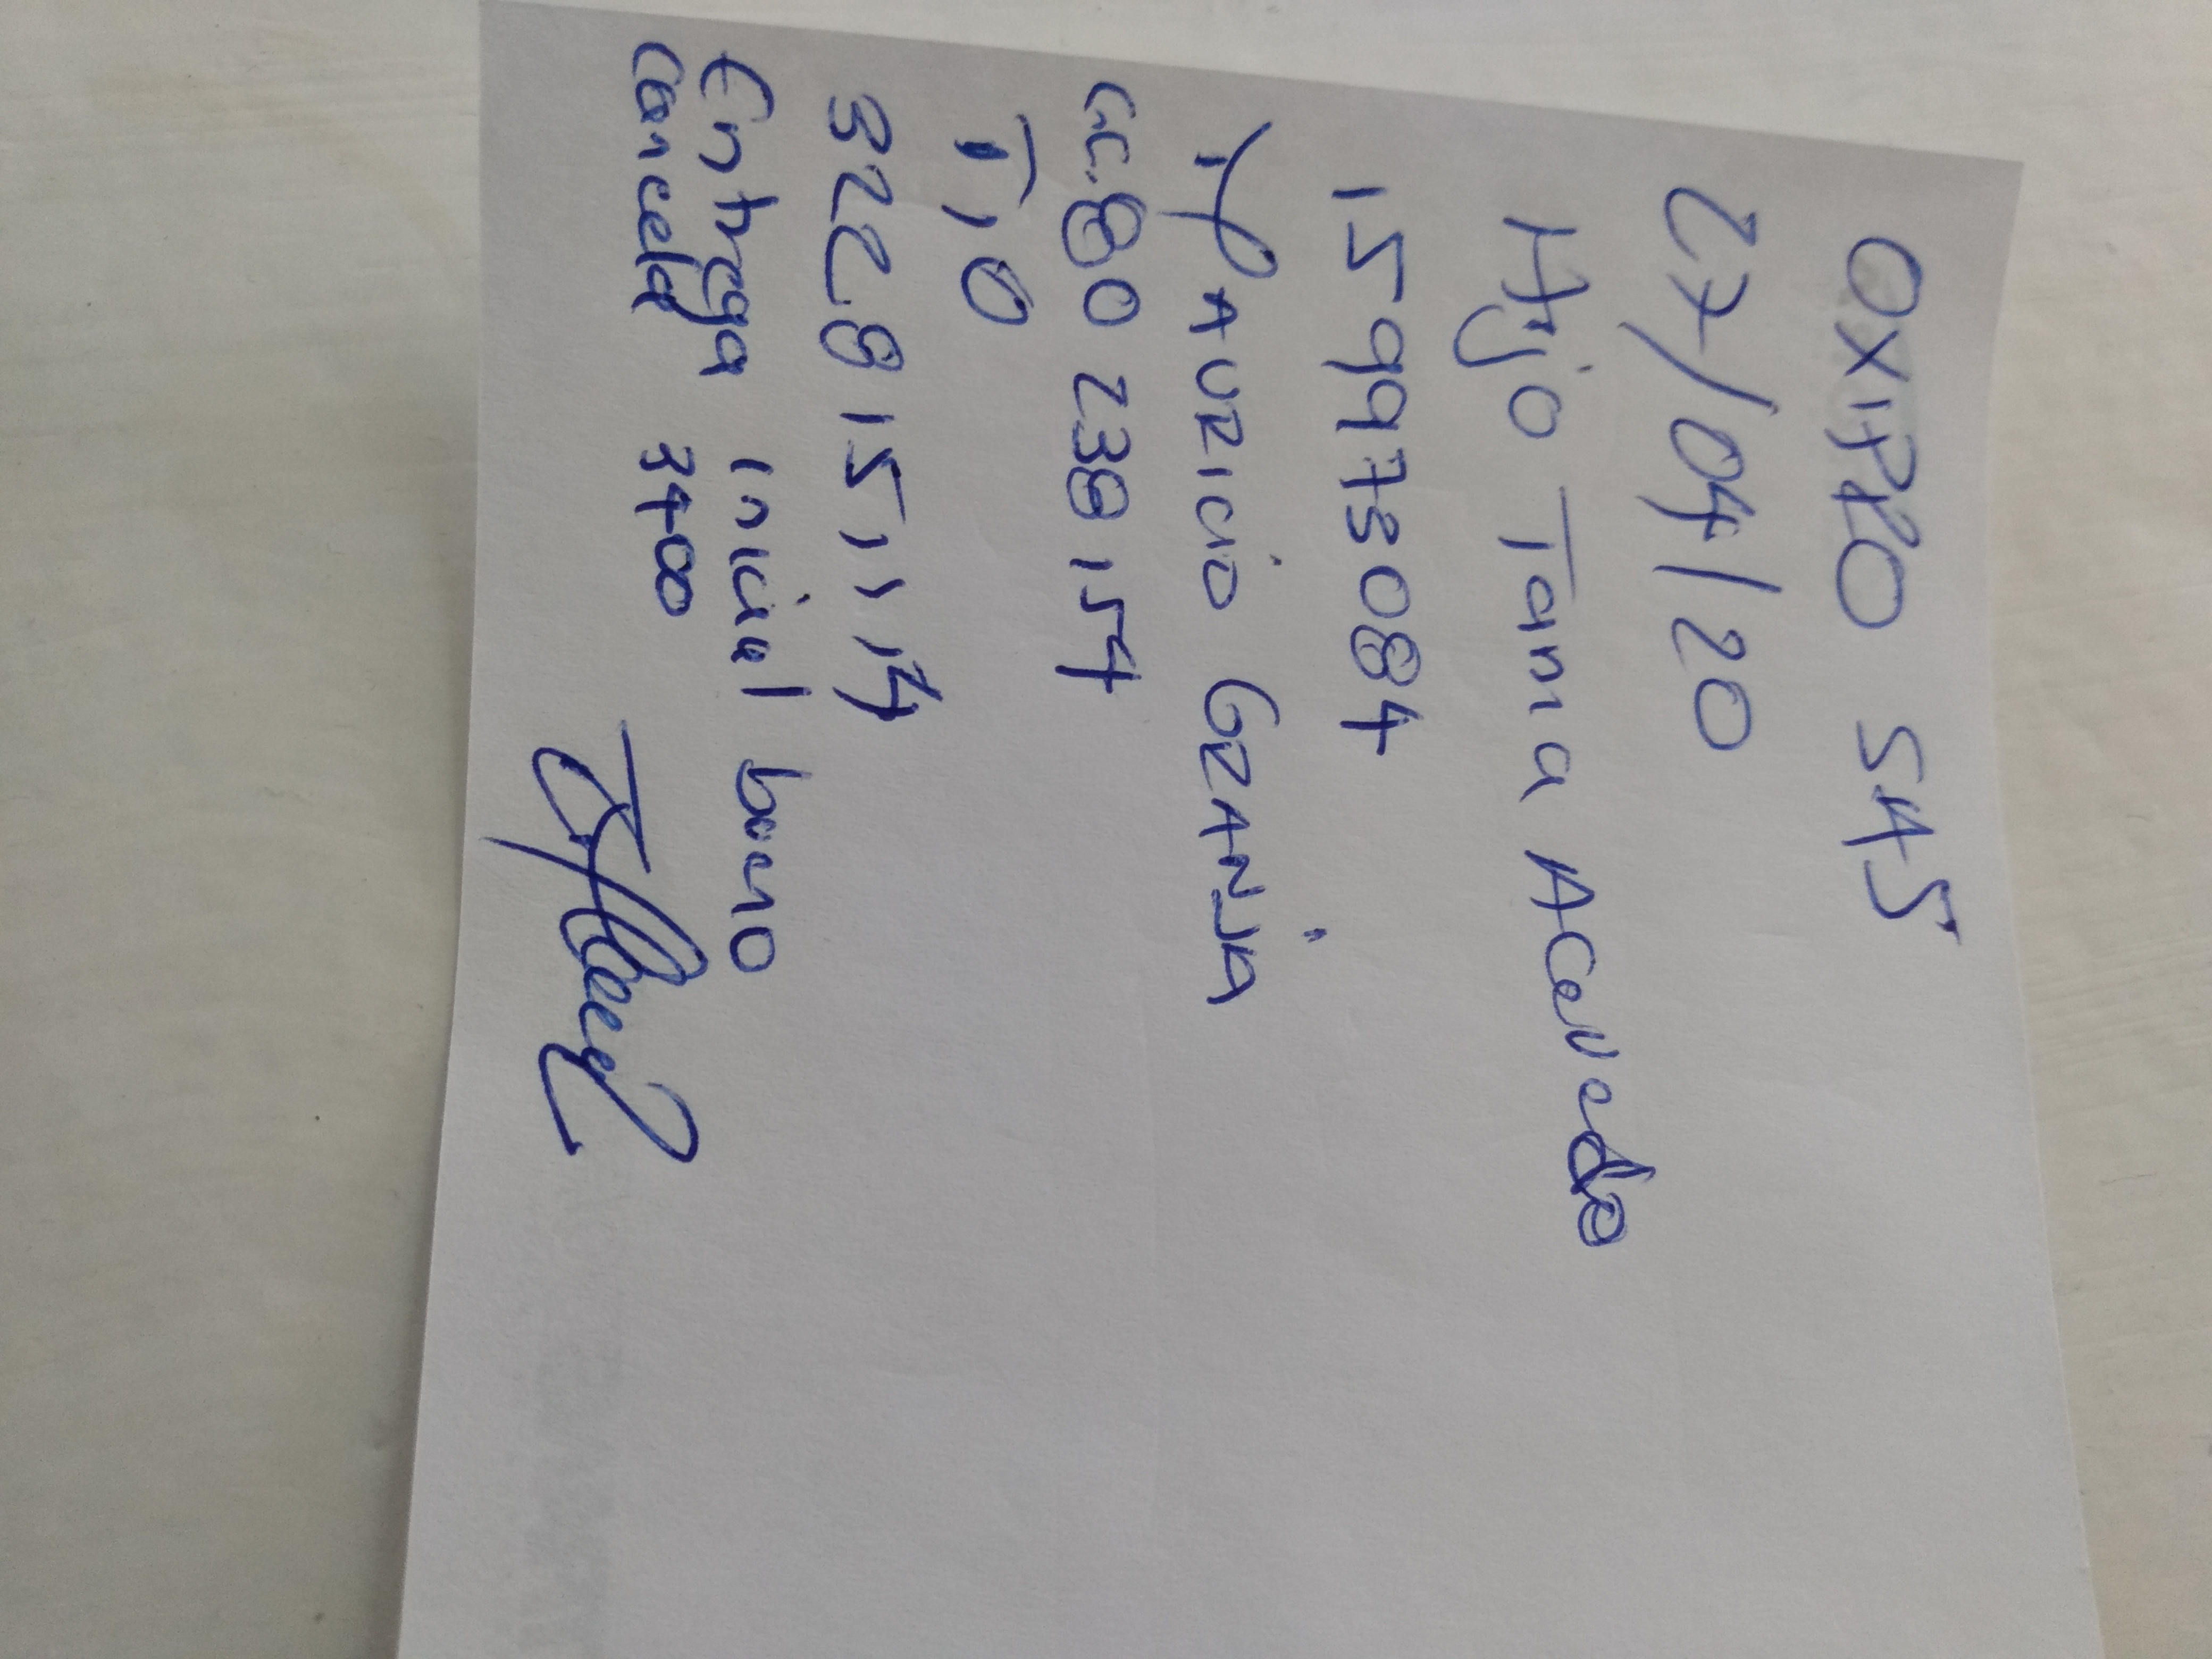 OXIPRO SAS
27/04/20
Hijo Tania Acevedo
159973084
MAURICIO GRANJA
C.C. 80 238 154
Tio
322 8 15 11 14
Entrega inicial bono
cancela 3400